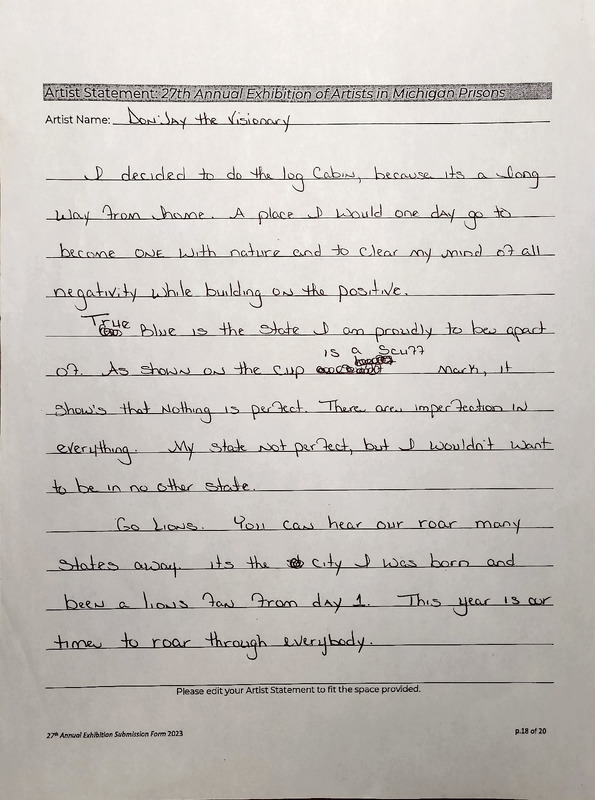 Artist Statement: 27th Annual Exhibition of Artists in Michigan Prisons
Artist Name: Don'Jay the Visionary
I decided to do the log Cabin, because its a long
way from home. A place I would one day go to
become ONE with nature and to clear my mind of all
negativity while building on the positive.
True Blue is the state I am proudly to be apart
of. As shown on the cup is a scuff mark, it
show's that nothing is perfect. There are imperfection in
everything. My state not perfect, but I wouldn't want
to be in no other state.
Go Lions. You can hear our roar many
states away. its the city I was born and
been a lions fan from day 1. This year is our
time to roar through everybody.
Please edit your Artist Statement to fit the space provided.
27th Annual Exhibition Submission Form 2023
p.18 of 20